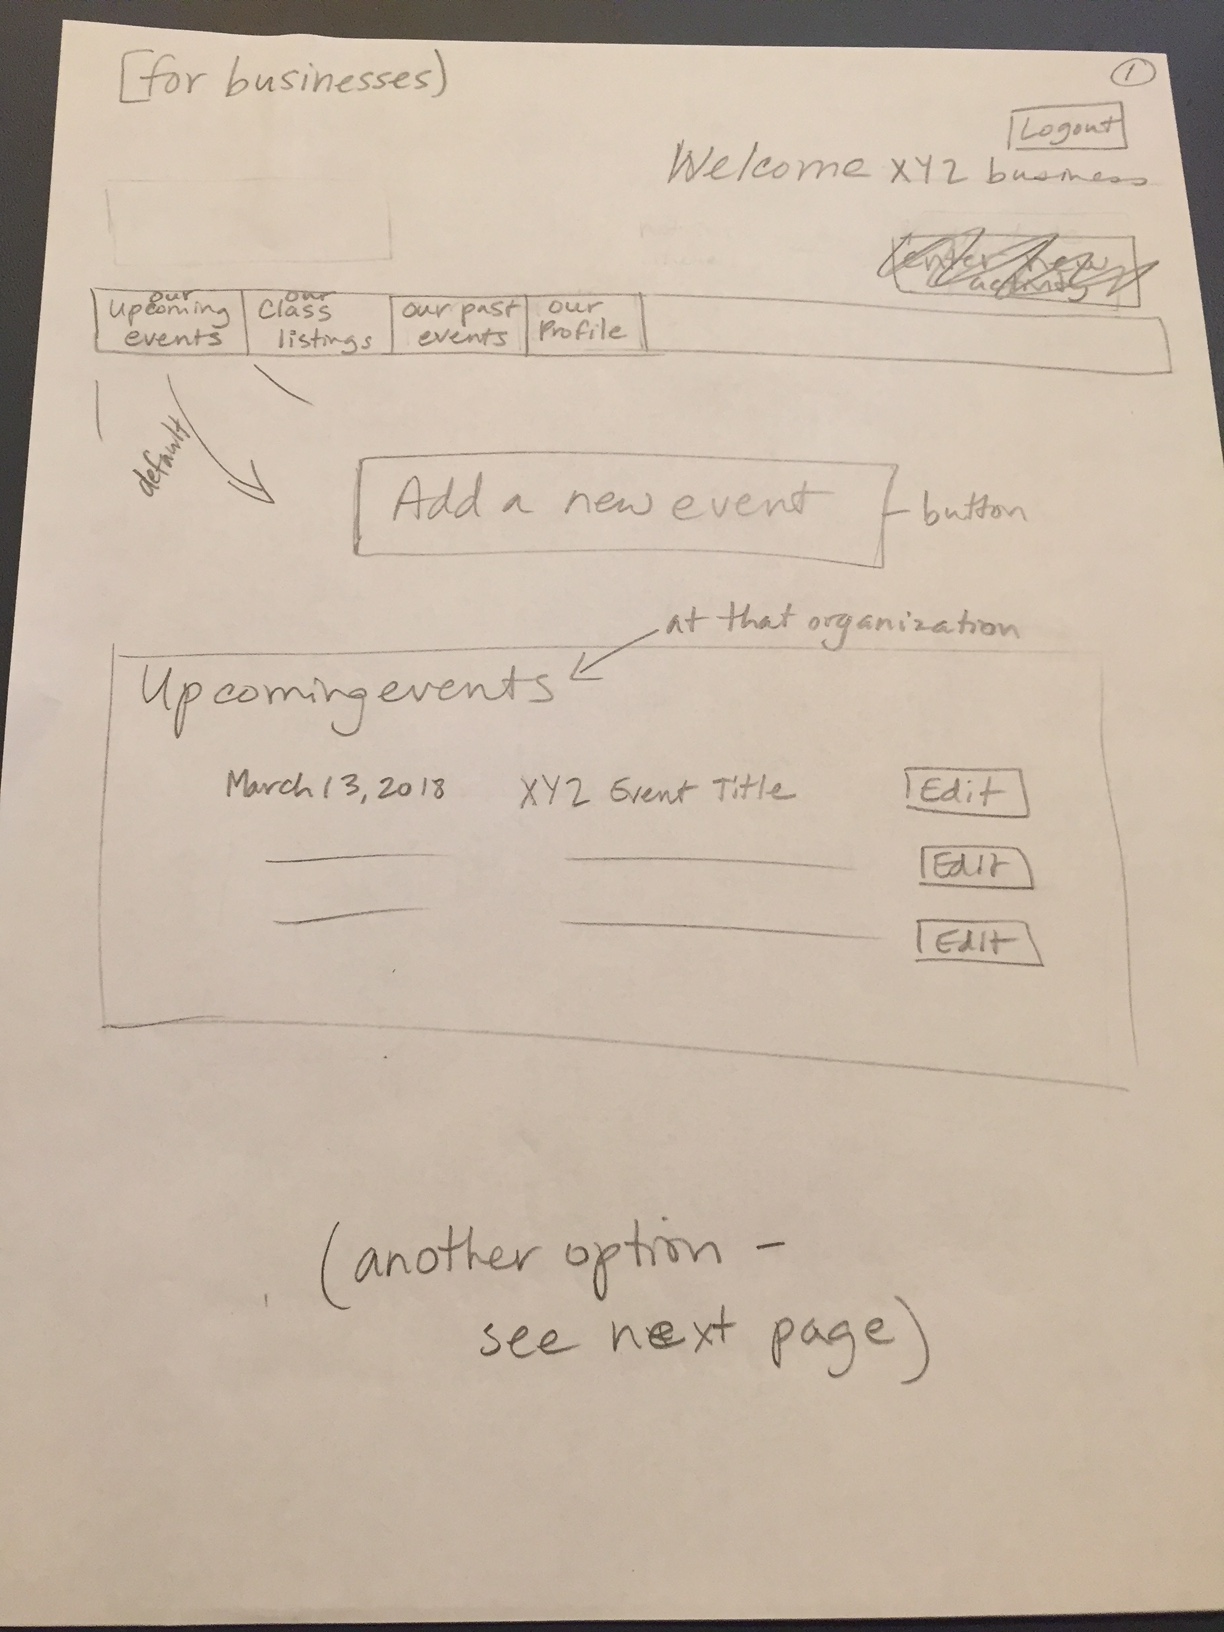 [for businesses)
1
Logout
Welcome XYZ business
enter new
activity
our
Upcoming
events
our
Class
listings
our past
events
our
Profile
default
Add a new event
button
at that organization
Upcoming events
March 13, 2018 XYZ Event Title Edit
Edit
Edit
(another option -
see next page)